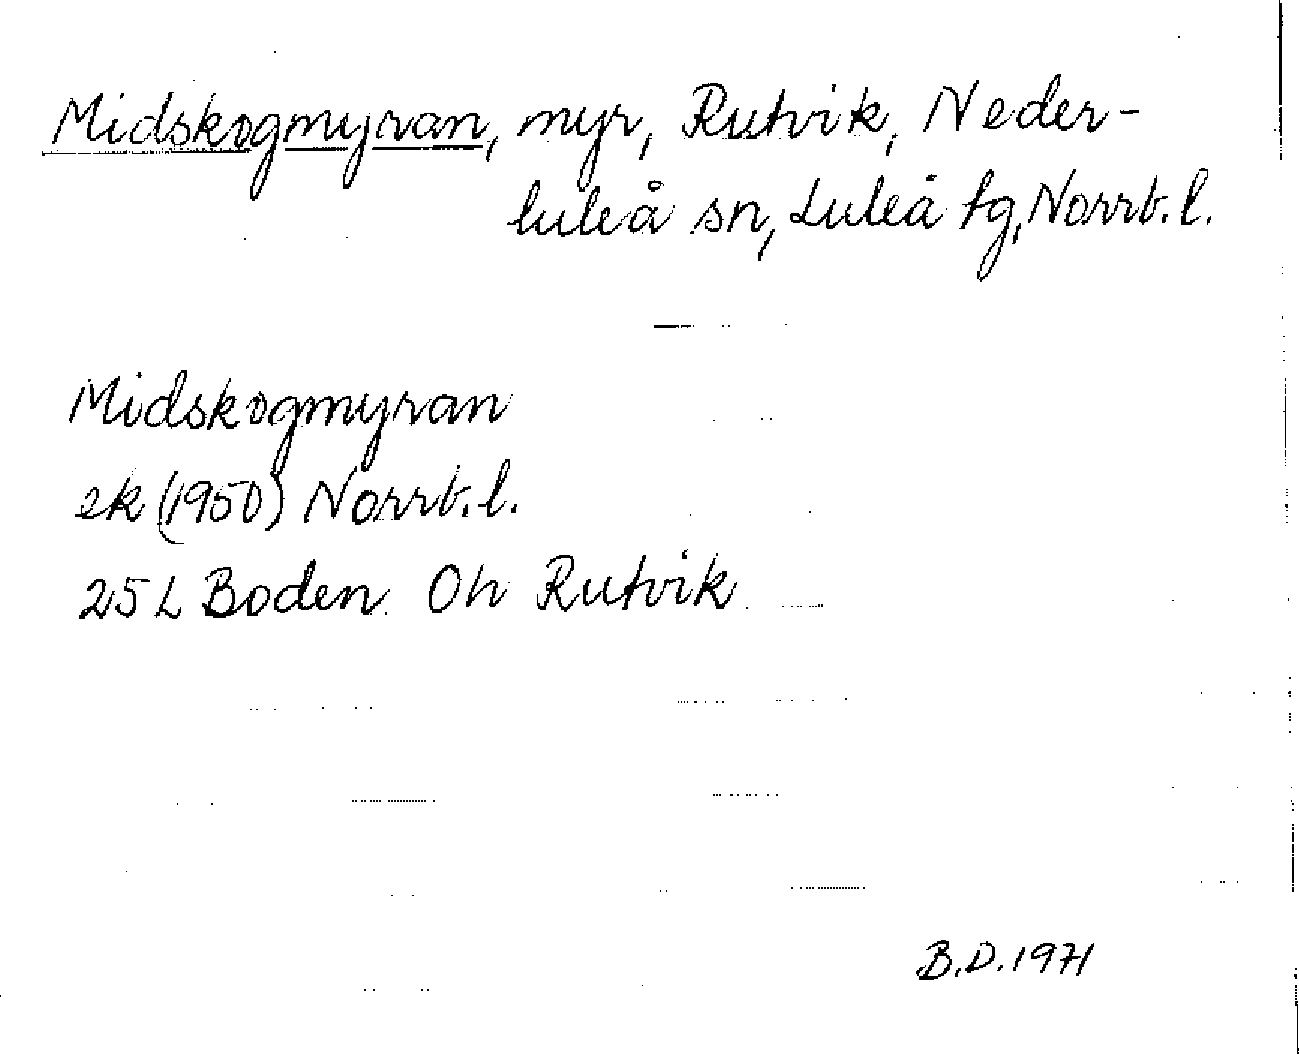 Midskogmyran, myr, Rutvik, Neder-
luleå sn, Luleå tg, Norrb. l.
Midskogmyran
ek (1950) Norrb. l.
25 L Boden. On Rutvik
B.D. 1971